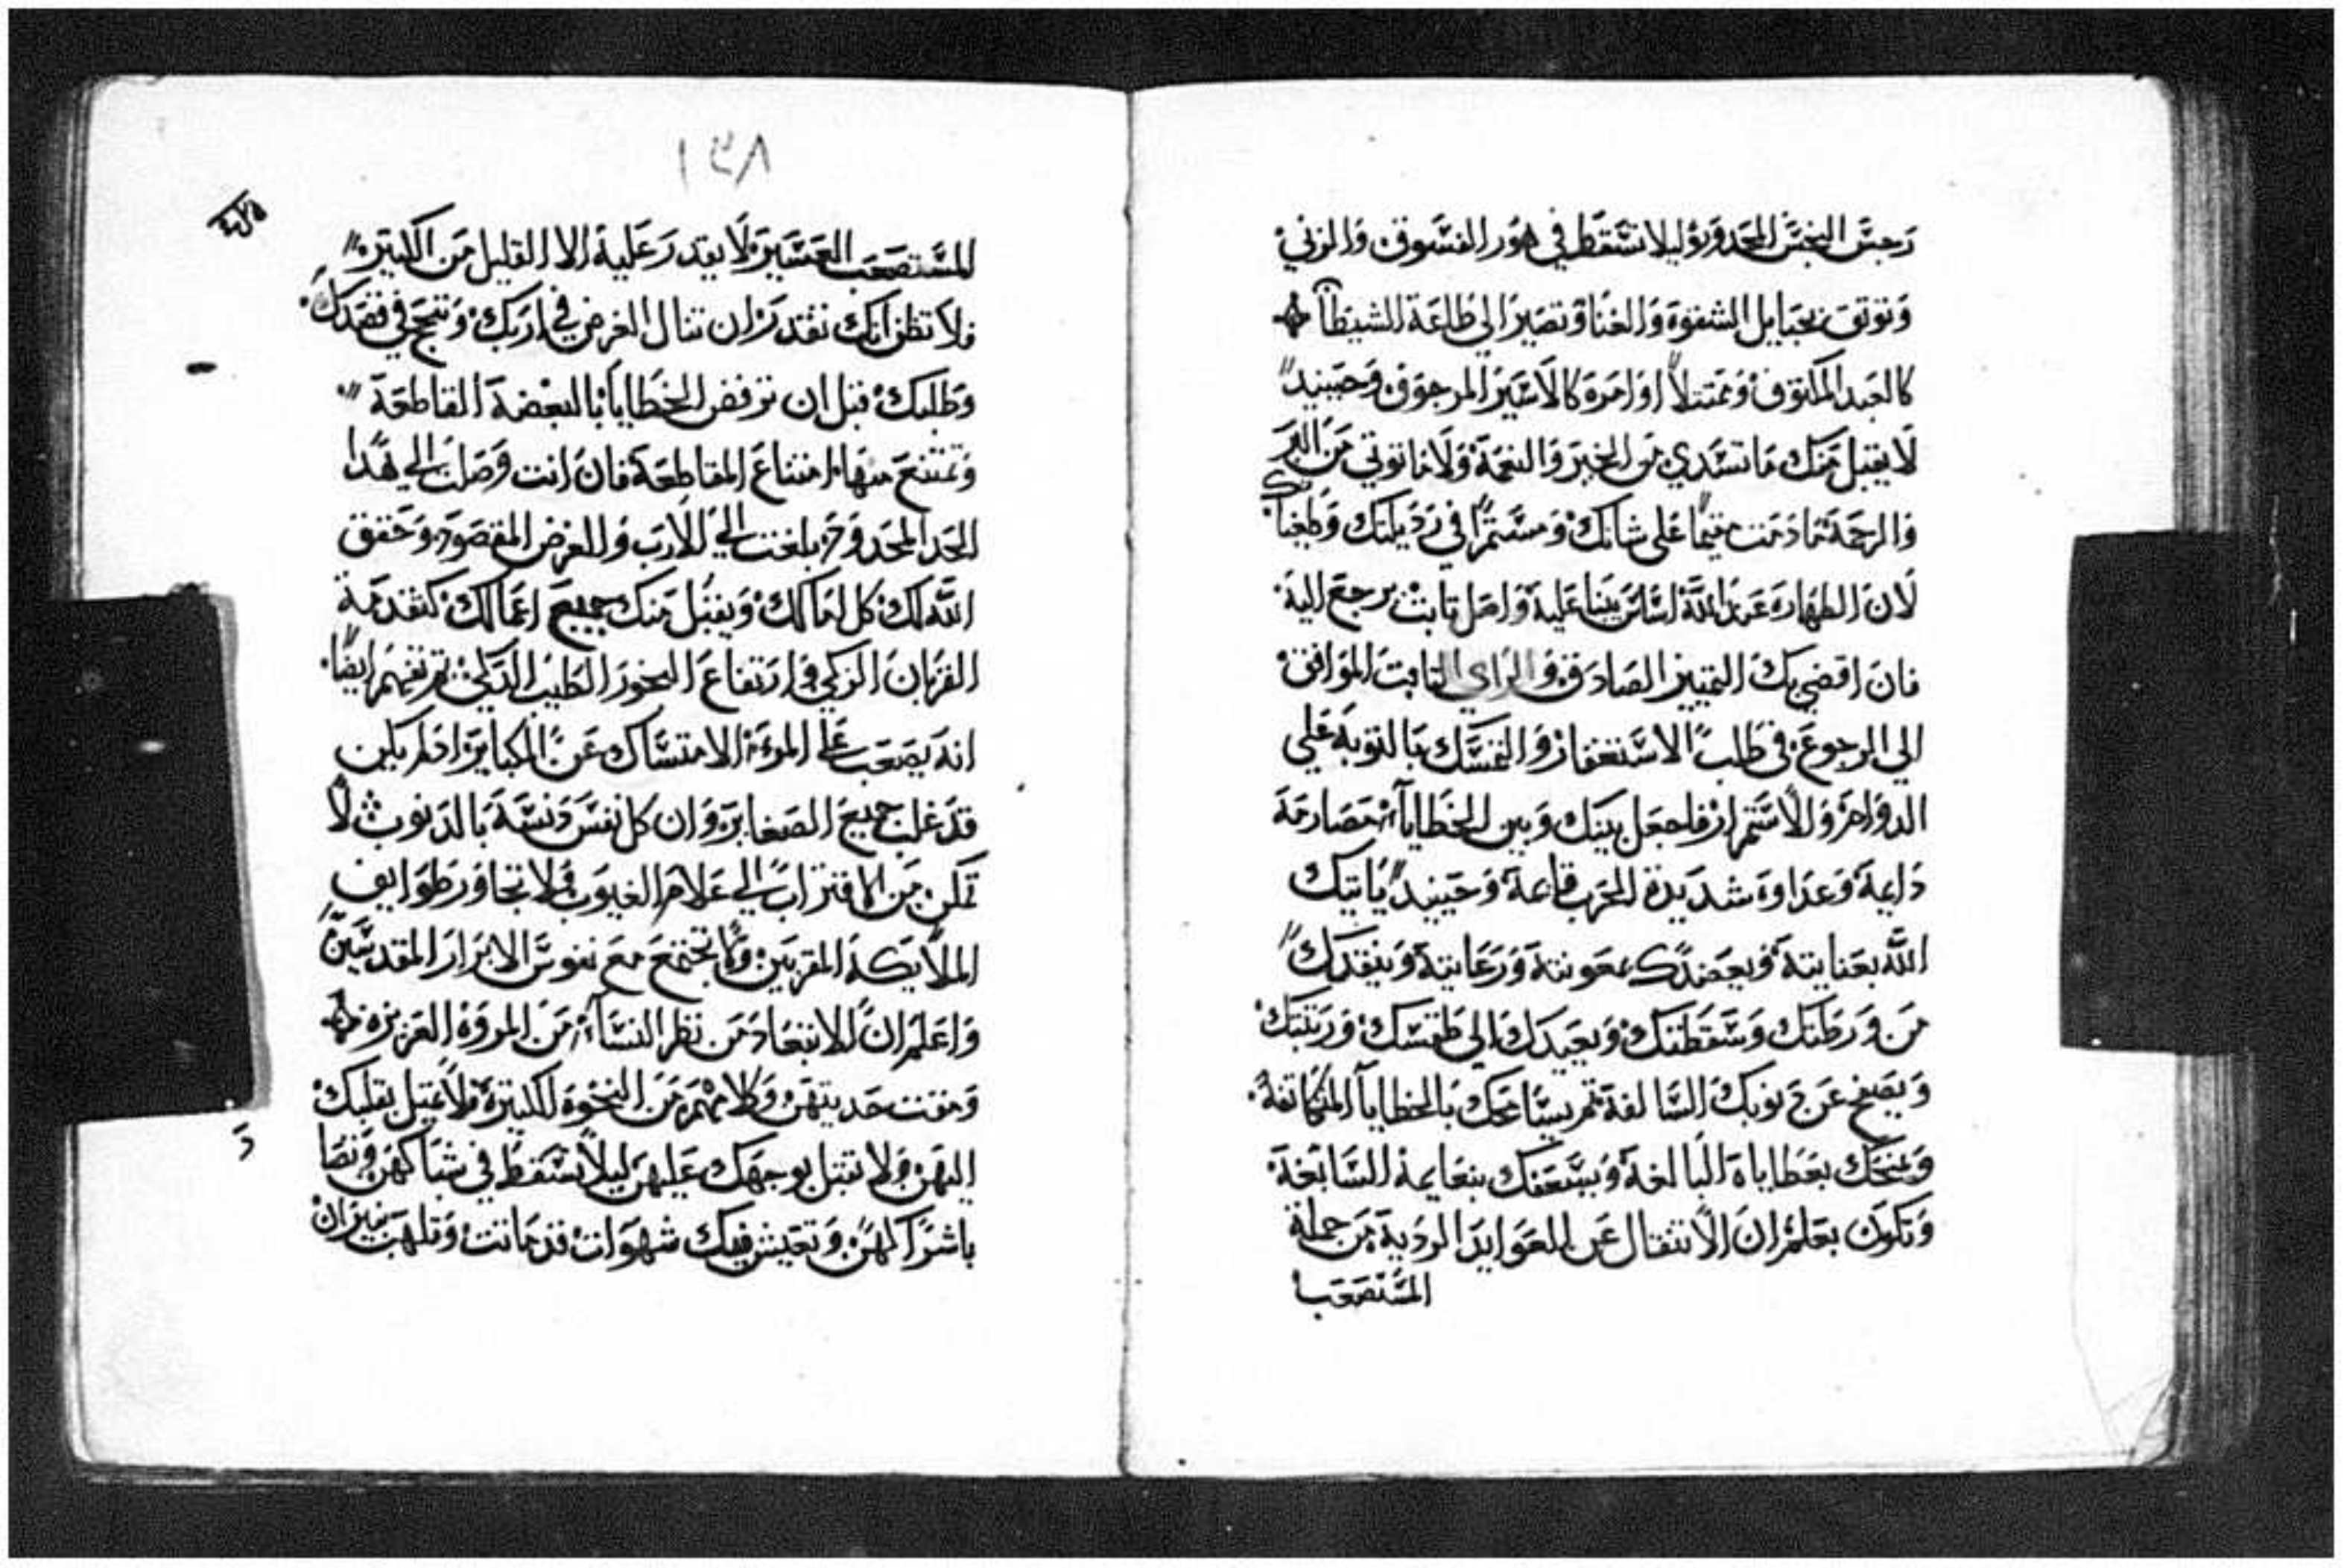 رجس النجس المحدور وليلا تسقط في هور الفسوق والزني
وتوتق بحبايل الشقوة والعنا وتصير الي طاعة الشيطان
كالعبد الملتوف وممتتلاً اوامرة كالاسير المرجوف وحينيد
لا يقبل منك ما تسدي من الخير والنعمة ولا ما توتي من البر
والرحمة ما دمت مقيماً على شانك ومستمراً في رديلتك وطغيانك
لان الطهارة عند الله اساس يبنا علية واصل تابت يرجع الية
فان اقضي بك التمييز الصادق والراي التابت الموافق
الي الرجوع في طلب الاستغفار والتمسك بالتوبة علي
الدوام والاستمرار فاجعل بينك وبين الخطايا مصارمة
دايمة وعداوة شديدة الحرب قايمة وحينيد ياتيك
الله بعنايتة ويعضدك بمعونتة ورعايتة وينقدك
من ورطتك وسقطتك ويعيدك الي طقسك ورتبتك
ويصفح عن دنوبك السالفة تم يسامحك بالخطايا المتكاتفة
ويمنحك بعطاياة البالغة ويسعفك بنعايمة السابغة
وتكون بعلم ان الانتقال عن العوايد الردية من جملة
المستصعب
١٣٨
المستصعب العسير لا يقدر علية الا القليل من الكتير
فلا تظن انك تقدر ان تنال الغرض في اربك وتنجح في قصدك
وطلبك قبل ان ترفض الخطايا بالبغضة القاطعة
وتمتنع منها امتناع المقاطعة فان انت وصلت الي هدا
الحد المحدود بلغت الي الارب والغرض المقصود وحقق
الله لك كل امالك ويقبل منك جميع اعمالك كتقدمة
القربان الزكي وارتفاع البخور الطيب الدكي تم تفهم ايضاً
انة يصعب علي المرء الامتساك عن الكباير ادا لم يكن
قد غلب جميع الصغاير وان كل نفس دنسة بالدنوب لا
تمكن من الاقتراب الي علام الغيوب ولا تجاور طوايف
الملايكة المقربين ولا تجتمع مع نفوس الابرار المقدسين
واعلم ان الابتعاد من نظر النساء من المروة العزيزة
ومقت حديتهن وكلامهم من النخوة الكبيرة ولا تميل بقلبك
اليهن ولا تقبل بوجهك عليهن ليلا تسقط في شباكهن وتصا
باشراكهن وتعيش فيك شهوات قد ماتت وتلهب نيران